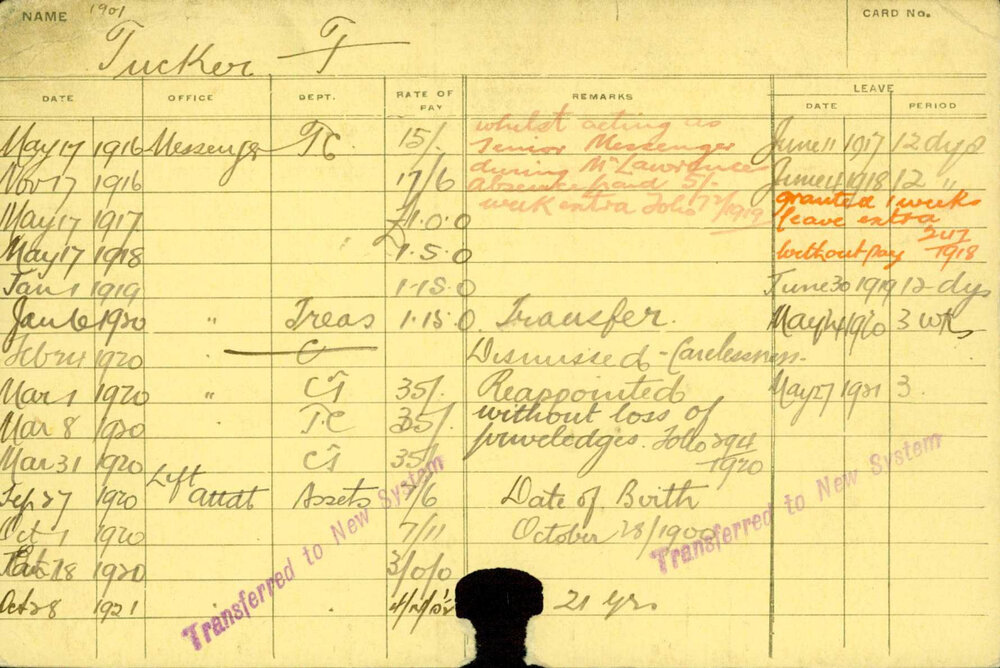 NAME 1901 CARD No.
Tucker, F
DATE OFFICE DEPT. RATE OF PAY REMARKS LEAVE DATE PERIOD
May 17 1916 Messenger TC 15/- whilst acting as June 11 1917 12 dys
Senior Messenger
Nov 17 1916 17/6 during Mr Lawrences June 1918 12 "
absence paid 5/-
week extra Folio 1919 granted 1 weeks
May 17 1917 £1.0.0 leave extra
May 17 1918 1.5.0 without pay 247/1918
Jan 1 1919 1.15.0 June 30 1919 12 dys
Jan 6 1920 " Treas 1.15.0 Transfer. May 24 1920 3 wks
Feb 24 1920 Dismissed - Carelessness.
Mar 1 1920 " CT 35/. Reappointed May 27 1921 3
Mar 8 1920 TC 35/. without loss of
priveledges. Folio 294/1920
Mar 31 1920 CT 35/
Sep 27 1920 Left Attdt Assets 7/6 Date of Birth
Oct 1 1920 7/11 October 28/1900
28 1920 3/0/0
Oct 28 1921 21 yrs
Transferred to New System
Transferred to New System